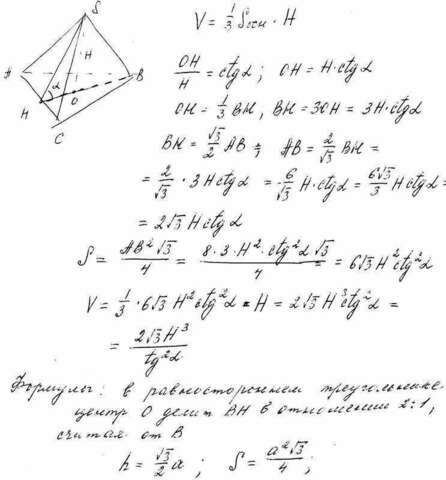 S
H
A
B
α
H
O
C
V = 1/3 Sосн · H
OH/H = ctgα ; OH = H·ctgα
OH = 1/3 BH, BH = 3OH = 3H·ctgα
BH = √3/2 AB ; AB = 2/√3 BH =
= 2/√3 · 3Hctgα = 6/√3 H·ctgα = 6√3/3 Hctgα =
= 2√3 Hctgα
S = AB²√3/4 = 8·3·H²·ctg²α√3/4 = 6√3 H²ctg²α
V = 1/3 · 6√3 H²ctg²α · H = 2√3 H³ctg²α =
= 2√3H³/tg²α
Формулы: в равностороннем треугольнике
центр O делит BH в отношении 2:1,
считая от B
h = √3/2 a ; S = a²√3/4 ;